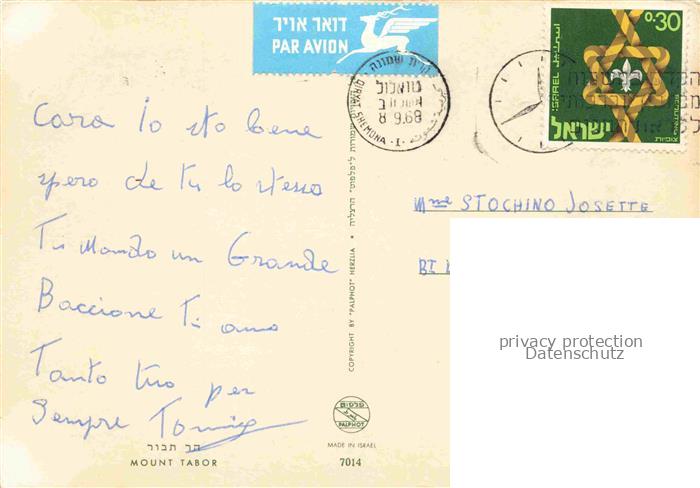 דואר אויר
PAR AVION
0.30
ISRAEL
ישראל
צופיות
QIRYAT SHEMONA
8 9.68
Cara Io sto bene
spero che tu lo stesso
Ti Mando un Grande
Baccione Ti amo
Tanto tuo per
Sempre
Mme STOCHINO JOSETTE
BT
privacy protection
Datenschutz
COPYRIGHT BY "PALPHOT" HERZLIA
PALPHOT
MADE IN ISRAEL
7014
הר תבור
MOUNT TABOR